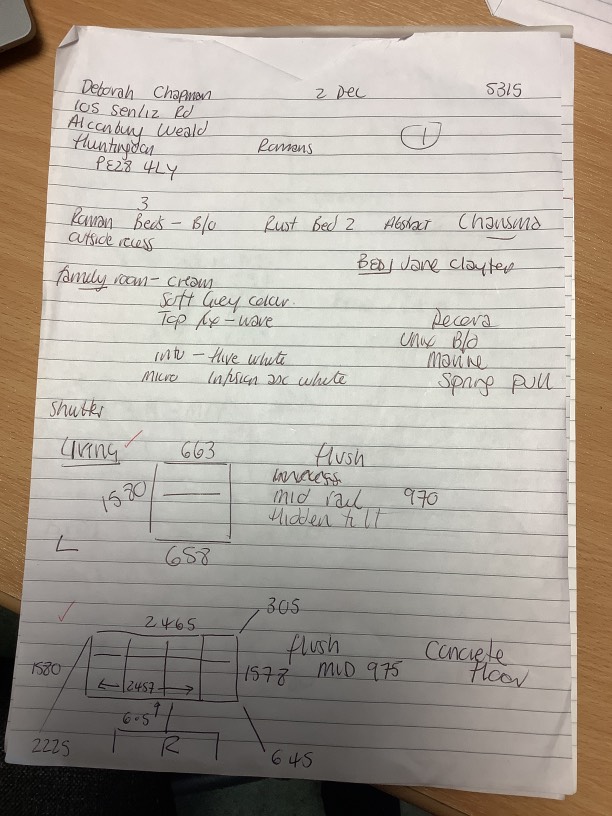 Deborah Chapman 2 Dec 5315
105 Senliz Rd
Alconbury Weald
Huntingdon Romans 1
PE28 4LY
3
Roman Beds - B/o Rust Bed 2 Abstract Charisma
outside recess
BED 1 Jane Clayton
family room - cream
Soft Grey colour
Top fix - wave Decora
Unix B/o
intu - five white Marine
micro Infusion asc white Spring pull
Shutter
Living 663 flush
inrecess
1580 mid rail 970
Hidden tilt
L
658
305
2465
flush Concrete
1580 1578 MID 975 floor
2457
605
2225 R 645